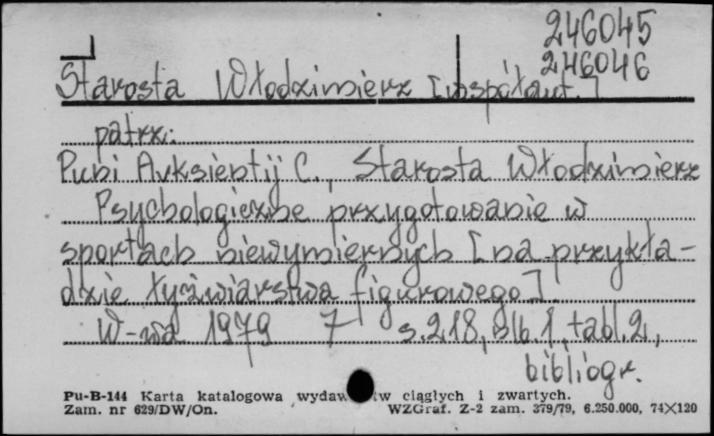 246045
246046
Starosta Włodzimierz [współaut.]
patrz:
Puni Avksientij C., Starosta Włodzimierz
Psychologiczne przygotowanie w
sportach niewymiernych [na przykła-
dzie łyżwiarstwa figurowego].
W-wa 1979 7 s. 218, slb. 1, tabl. 2,
bibliogr.
Pu-B-144 Karta katalogowa wydaw tw ciągłych i zwartych.
Zam. nr 629/DW/On. WZGraf. Z-2 zam. 379/79, 6.250.000, 74×120